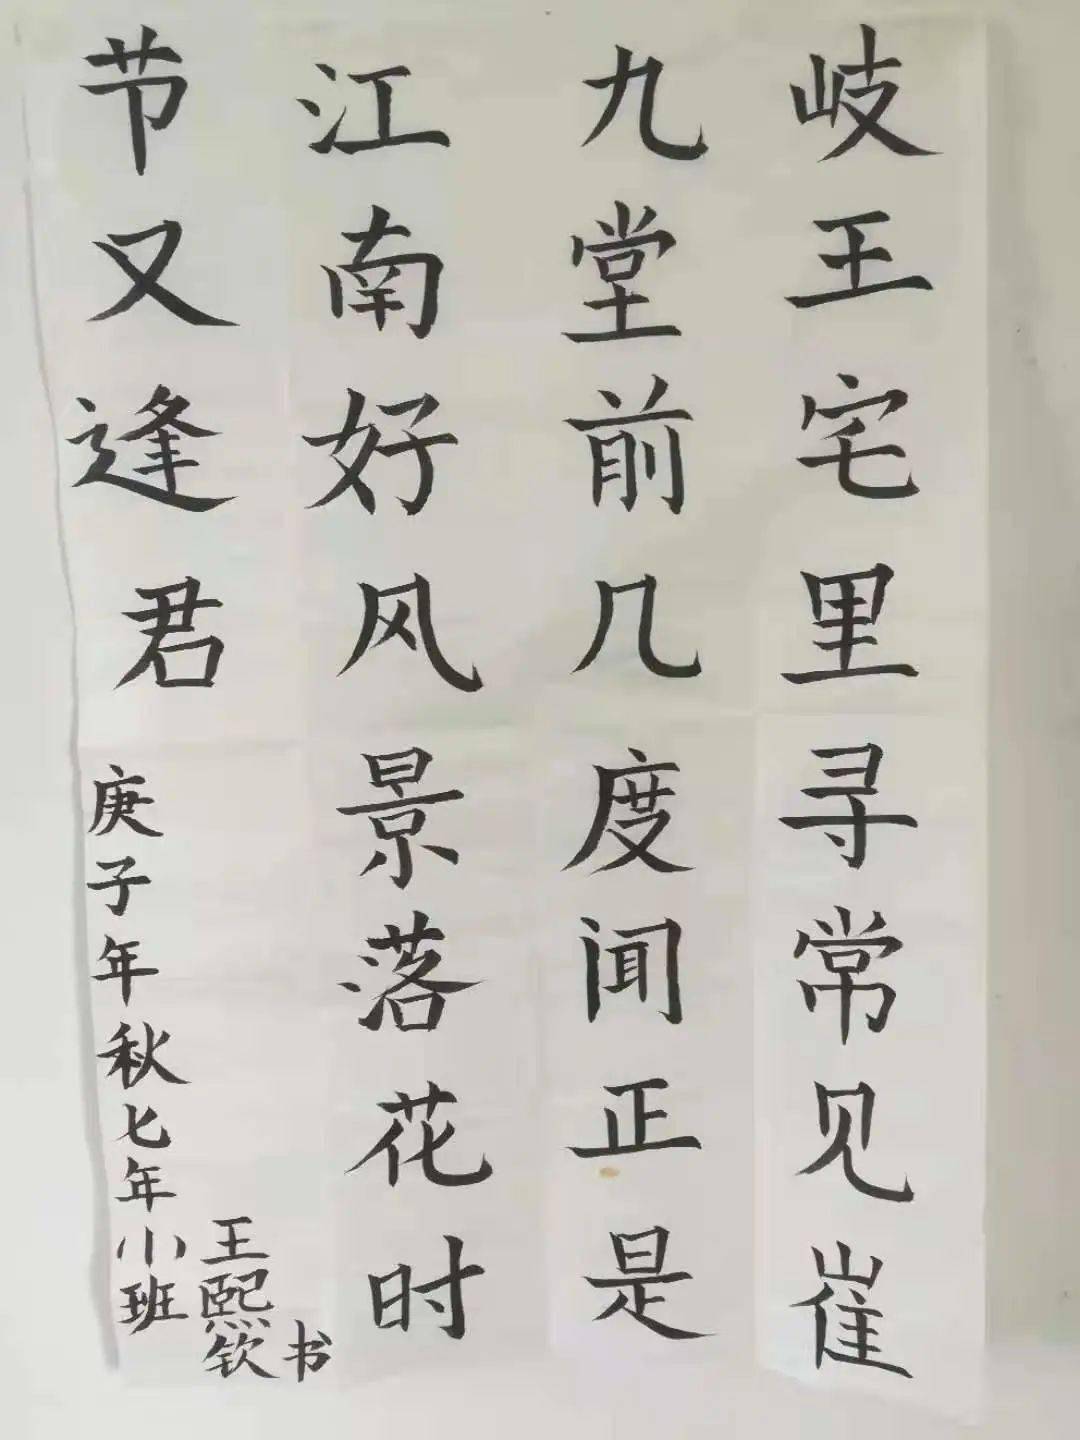 岐王宅里寻常见崔
九堂前几度闻正是
江南好风景落花时
节又逢君
庚子年秋七年小班
王熙钦书